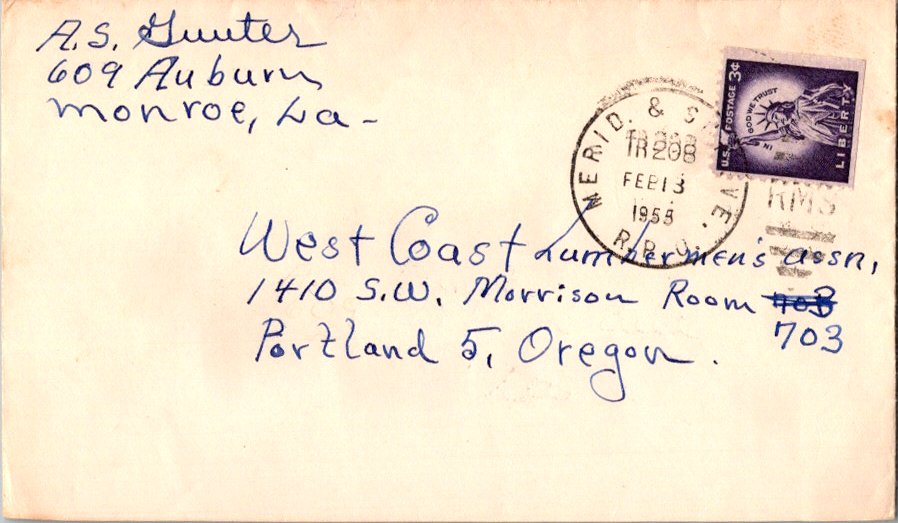 A.S. Gunter
609 Auburn
Monroe, La-
U.S. POSTAGE 3¢
IN GOD WE TRUST
LIBERTY
MERID. & SHREVE.
TR 208
FEB 13
1955
R.P.O.
RMS
West Coast Lumbermen's assn,
1410 S.W. Morrison Room 703
703
Portland 5, Oregon.